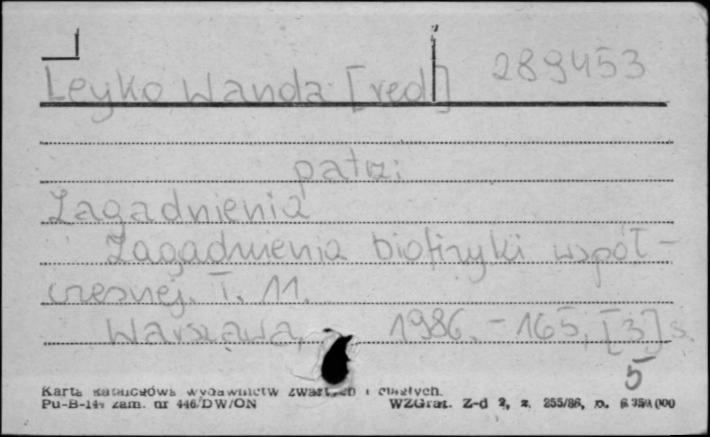 Leyko Wanda [red] 289453
patrz:
Zagadnienia
Zagadnienia biofizyki współ-
czesnej. T. 11.
Warszawa, 1986. - 165, [3] s.
5
Karta katalogowa wydawnictw zwartych i ciągłych.
Pu-B-14 zam. nr 446/DW/ON WZGraf. Z-d 2, z. 255/86, n.